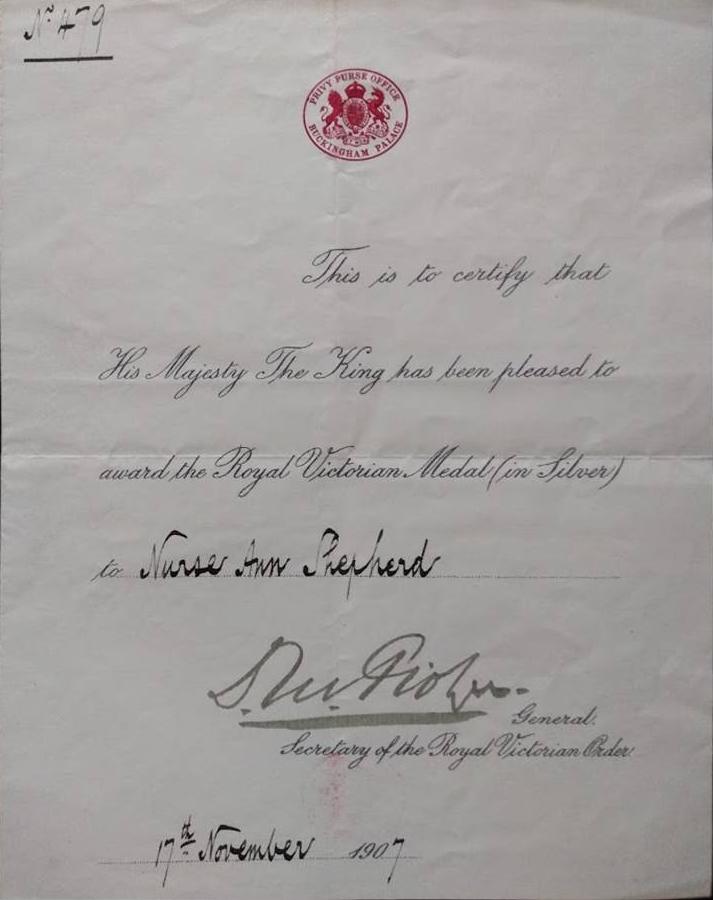 Nº 479
PRIVY PURSE OFFICE
BUCKINGHAM PALACE
This is to certify that
His Majesty The King has been pleased to
award the Royal Victorian Medal (in Silver)
to Nurse Ann Shepherd
General.
Secretary of the Royal Victorian Order.
17th November 1907